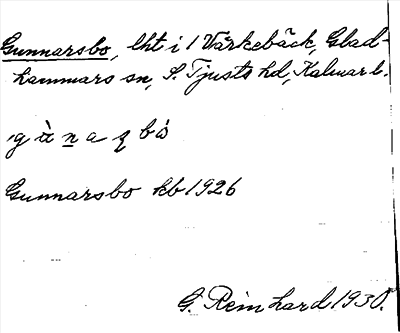 Gunnarsbo, lht i 1 Vårkebäck, Glad-
hammars sn, S. Tjusts hd, Kalmar l.
Gunnarsbo kb 1926
G. Reinhard 1930.